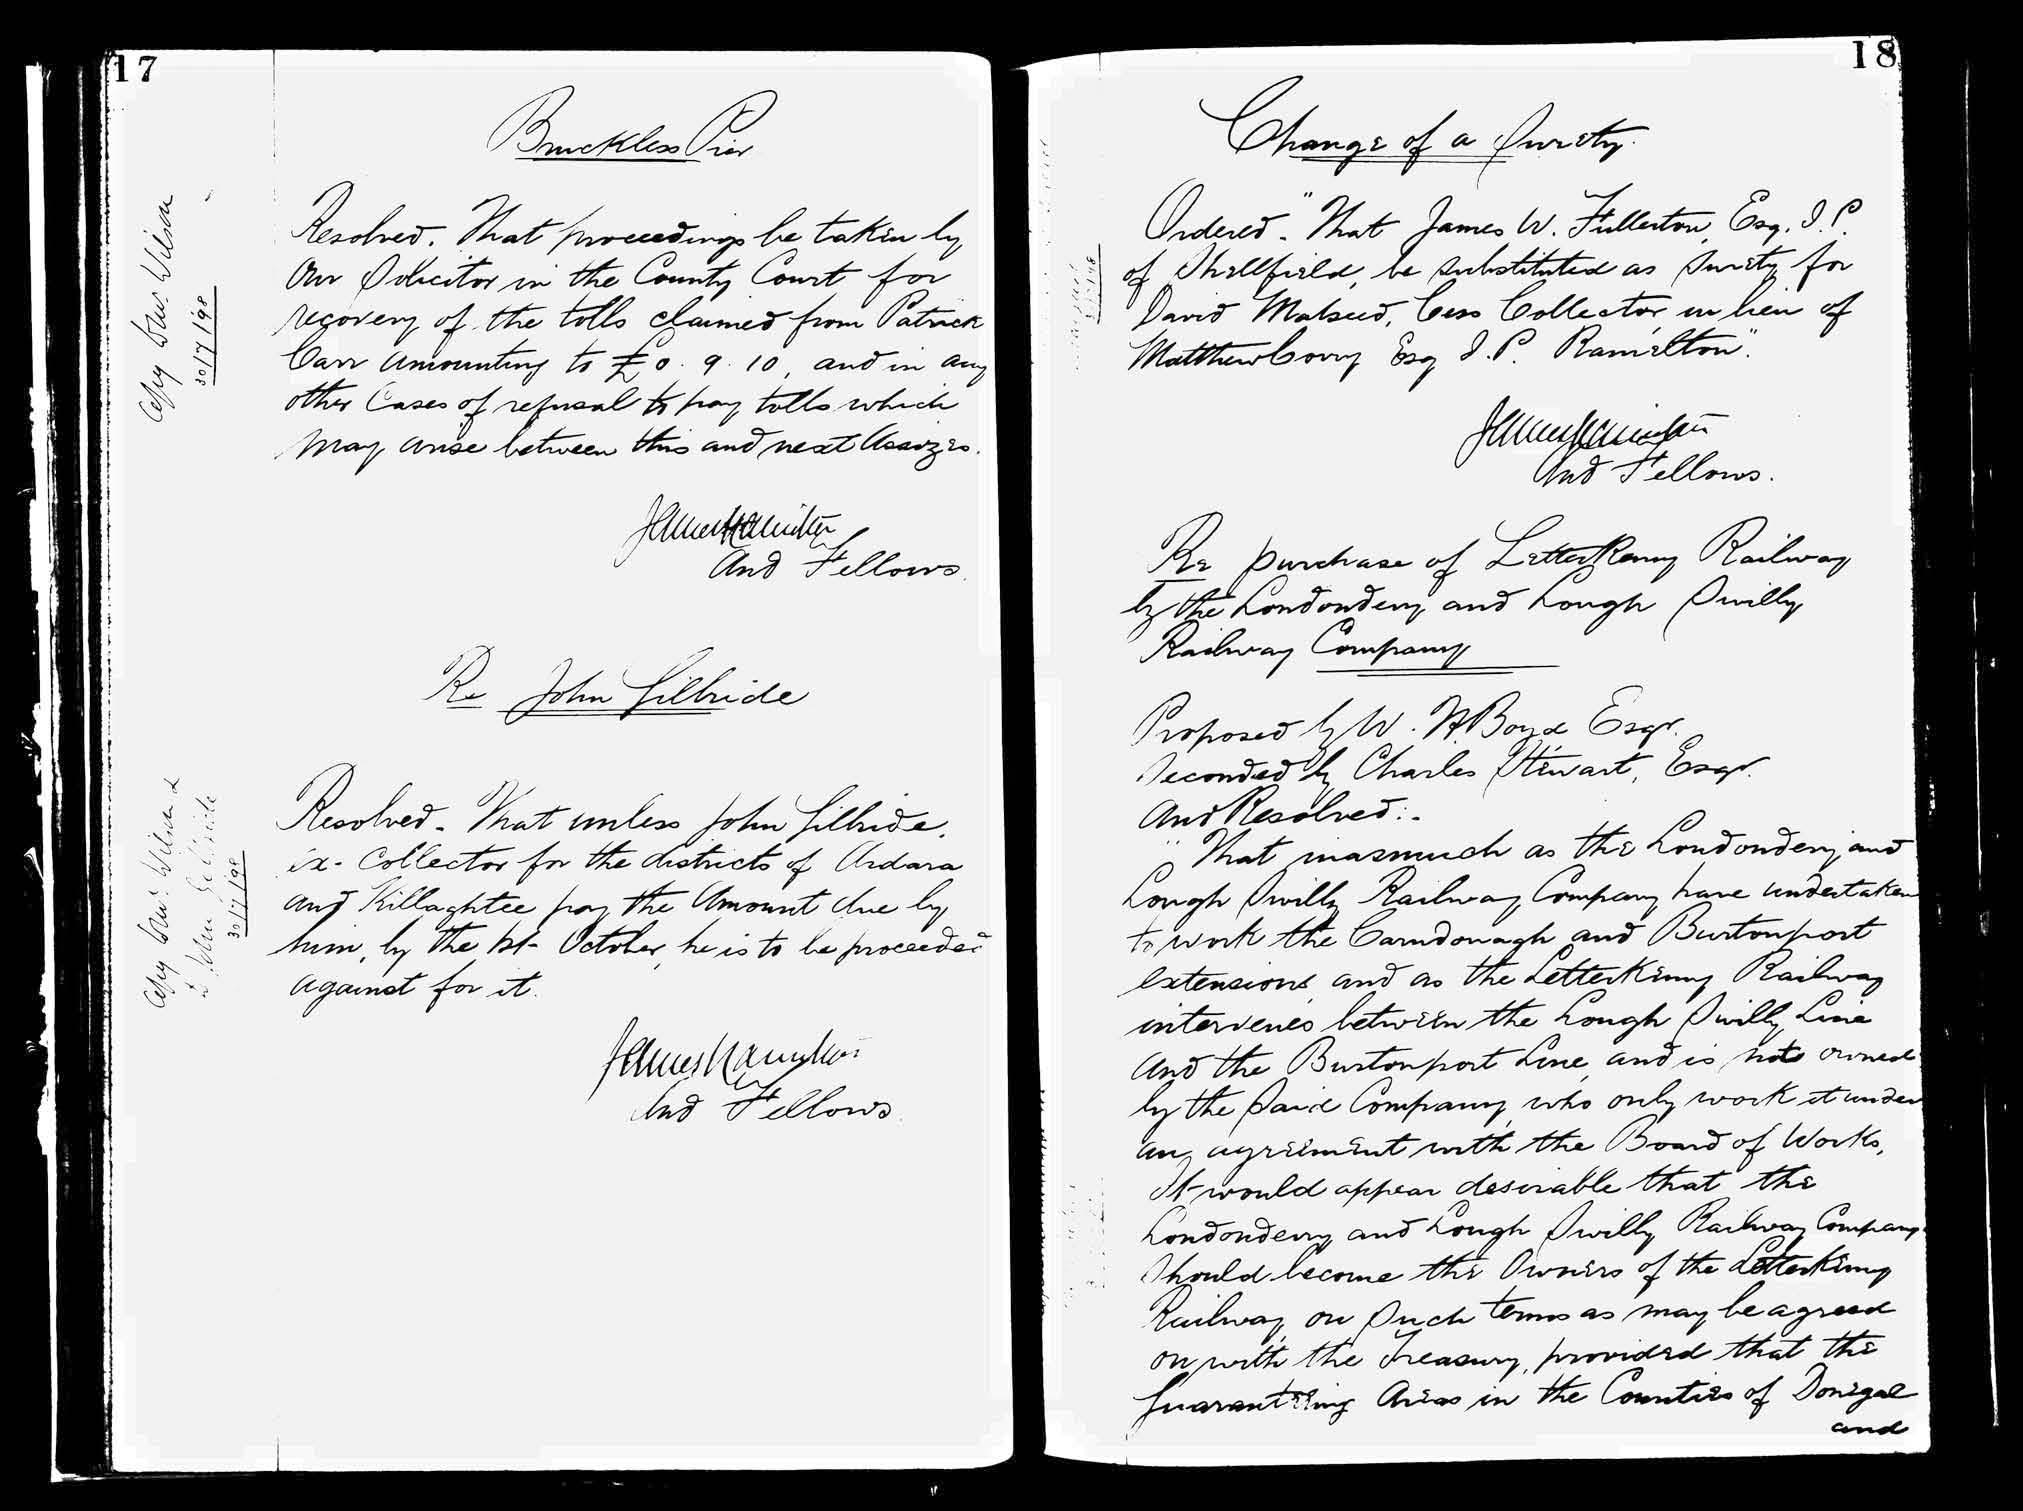 17
Bruckless Pier
Copy Wm. Wilson
30/7/98
Resolved. That proceedings be taken by
our Solicitor in the County Court for
recovery of the tolls claimed from Patrick
Carr amounting to £0. 9. 10, and in any
other Cases of refusal to pay tolls which
may arise between this and next Assizes.
James Hamilton
And Fellows.
Re John Gilbride
Copy Wm. Wilson &
John Gilbride
30/7/98
Resolved. That unless John Gilbride,
ex-Collector for the districts of Ardara
and Killaghtee pay the Amount due by
him, by the 1st October, he is to be proceeded
against for it.
James Hamilton
And Fellows.
18
Change of a Surety.
Ordered. "That James W. Fullerton, Esq. J.P.
of Shellfield, be substituted as Surety for
David Molseed, Cess Collector, in lieu of
Matthew Corry Esq J.P. Ramelton".
James Hamilton
And Fellows.
Re purchase of Letterkenny Railway
by the Londonderry and Lough Swilly
Railway Company
Proposed by W. H Boyd Esqr.
Seconded by Charles Stewart, Esqr.
And Resolved:-
"That inasmuch as the Londonderry and
Lough Swilly Railway Company have undertaken
to work the Carndonagh and Burtonport
extensions, and as the Letterkenny Railway
intervenes between the Lough Swilly Line
and the Burtonport Line, and is not owned
by the said Company, who only work it under
an agreement with the Board of Works,
It would appear desirable that the
Londonderry and Lough Swilly Railway Company
should become the Owners of the Letterkenny
Railway, on such terms as may be agreed
on with the Treasury, provided that the
Guaranteeing Areas in the Counties of Donegal
and